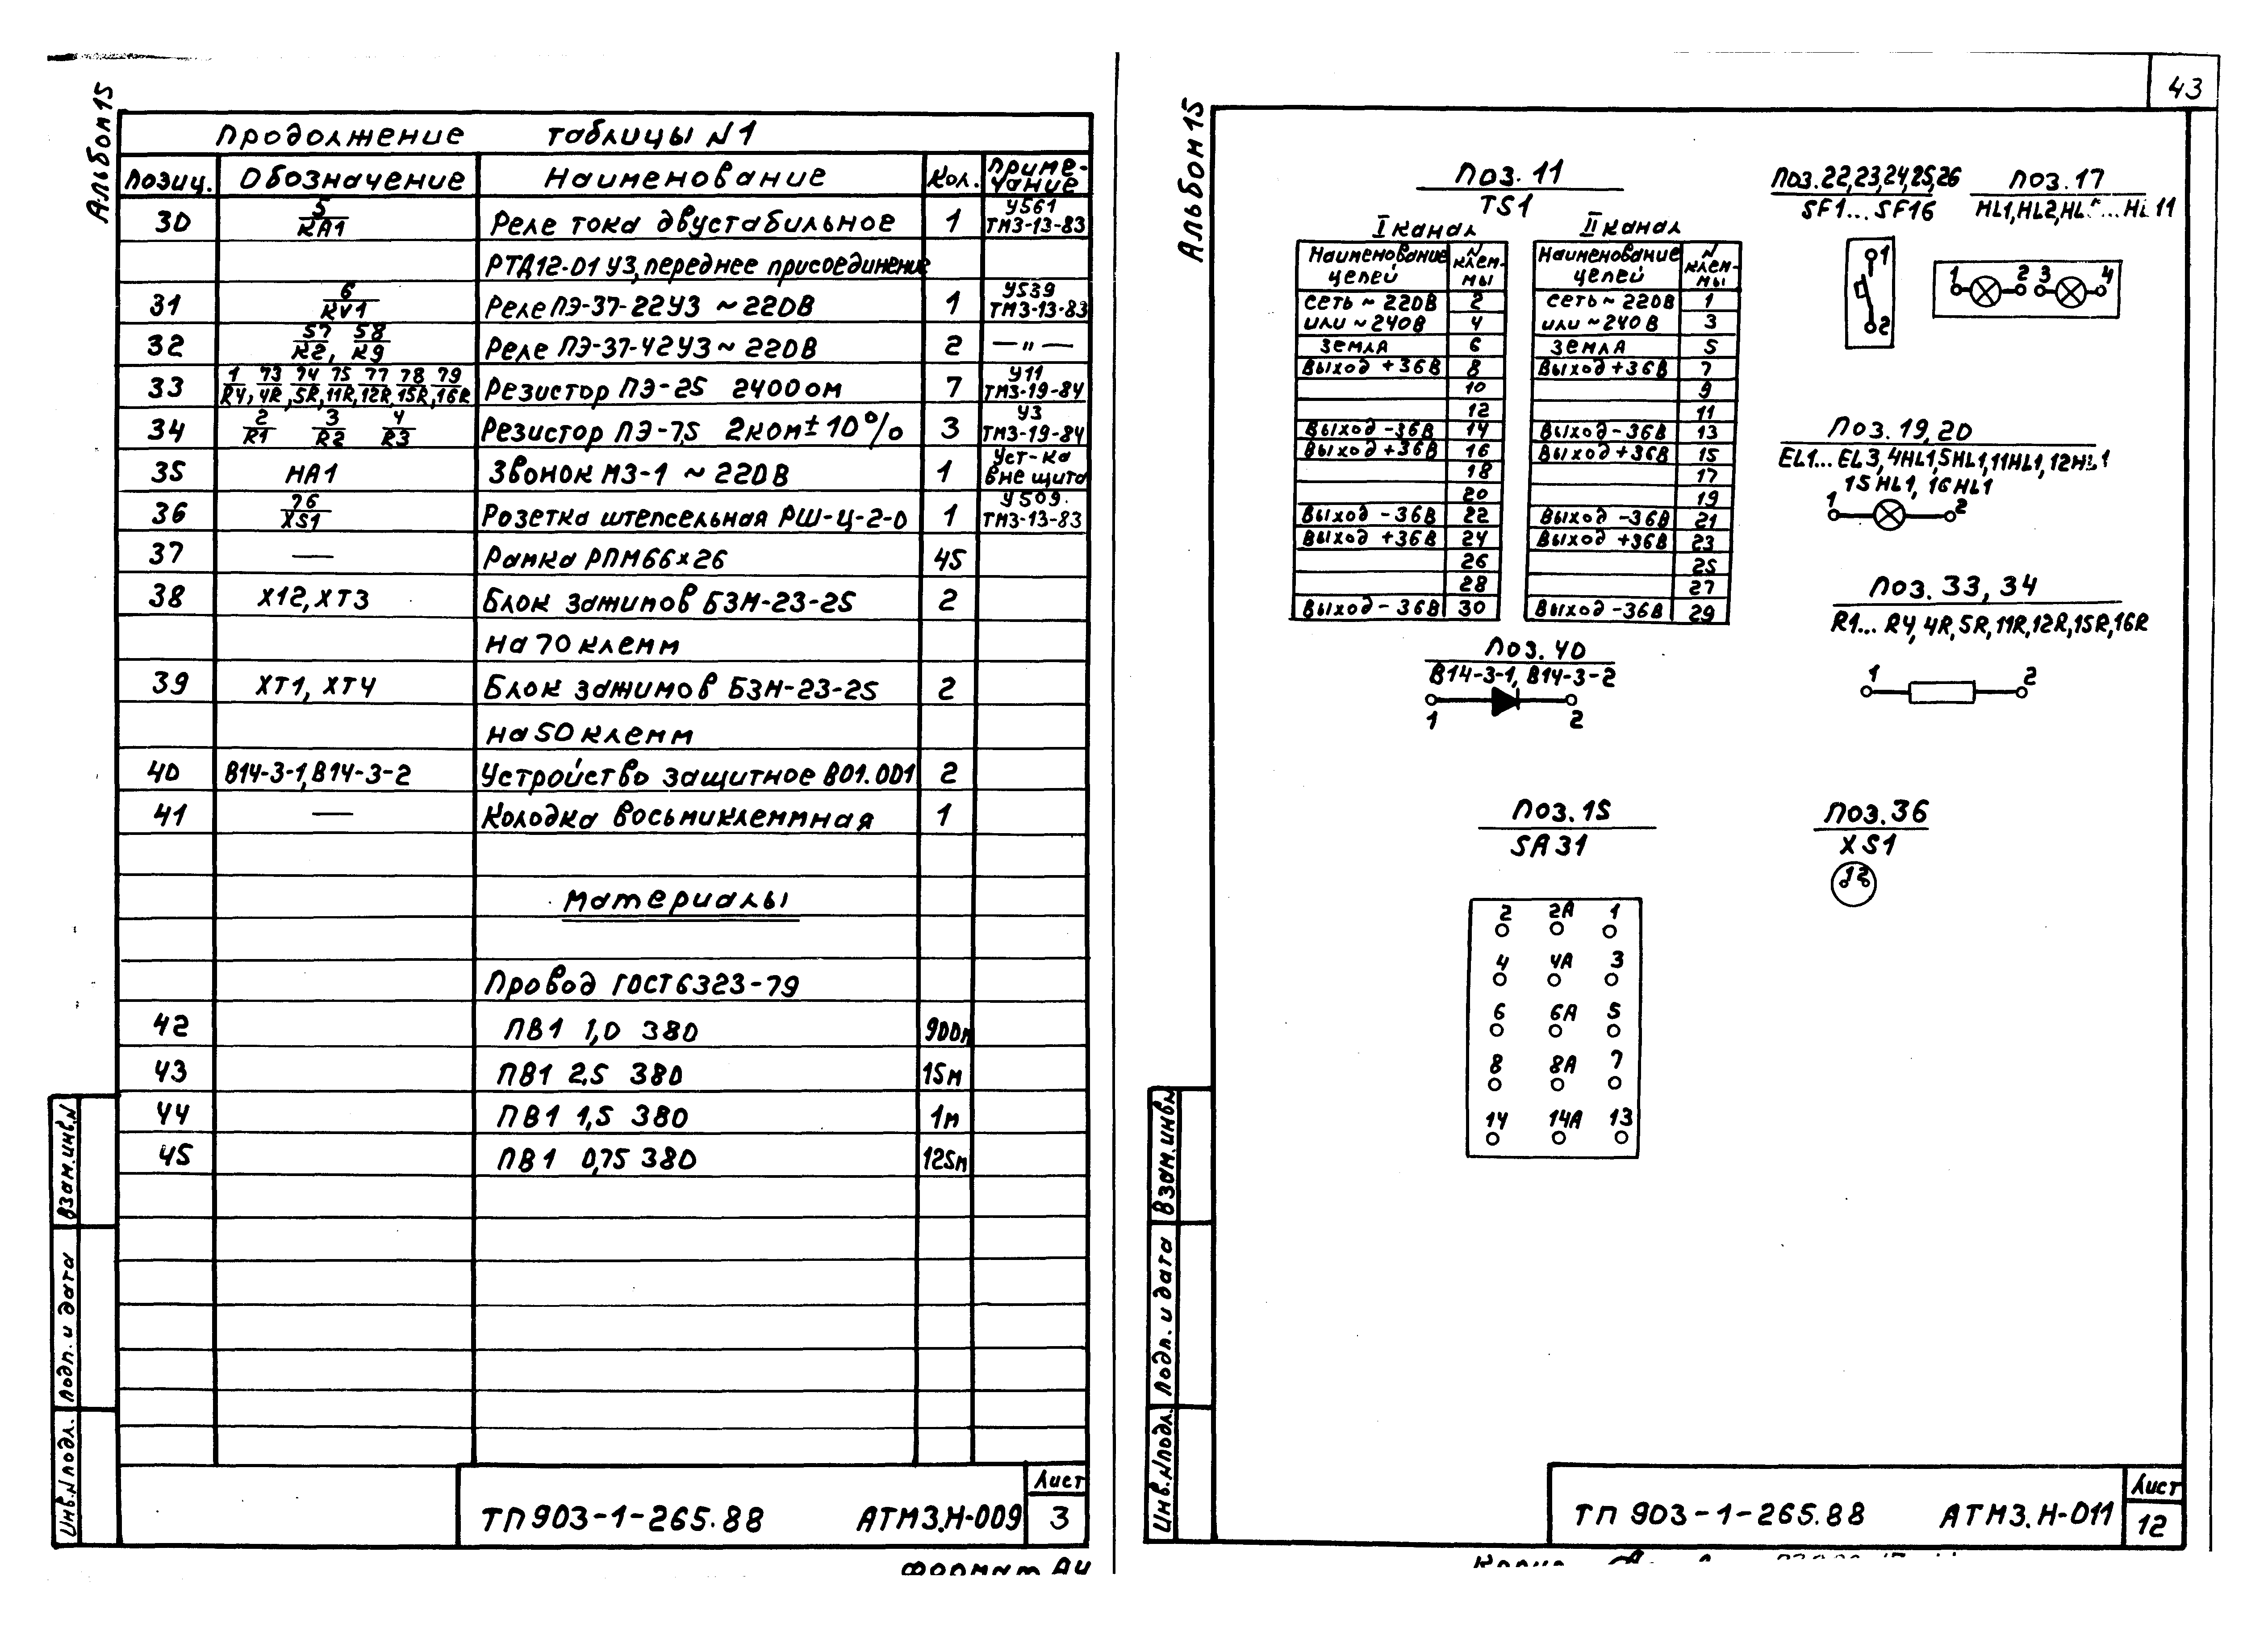 Альбом 15
Продолжение таблицы N1
Позиц. Обозначение Наименование Кол. Примечание
30 5/KA1 Реле тока двустабильное 1 У561 ТМ3-13-83
РТД12-01 У3, переднее присоединение
31 6/RV1 Реле ПЭ-37-22У3 ~220В 1 У539 ТМ3-13-83
32 57/K2, 58/K9 Реле ПЭ-37-42У3 ~ 220В 2 —"—
33 1/R4, 73/4R, 74/5R, 75/11R, 77/12R, 78/15R, 79/16R Резистор ПЭ-25 2400ом 7 У11 ТМ3-19-84
34 2/R1 3/R2 4/R3 Резистор ПЭ-7,5 2ком±10% 3 У3 ТМ3-19-84
35 НА1 Звонок МЗ-1 ~220В 1 Уст-ка вне щита
36 76/XS1 Розетка штепсельная РШ-Ц-2-0 1 У509. ТМ3-13-83
37 — Рамка РПМ66×26 45
38 Х12, ХТ3 Блок зажимов БЗН-23-25 2
на 70 клемм
39 ХТ1, ХТ4 Блок зажимов БЗН-23-25 2
на 50 клемм
40 В14-3-1, В14-3-2 Устройство защитное В01.001 2
41 — Колодка восьмиклеммная 1
Материалы
Провод ГОСТ 6323-79
42 ПВ1 1,0 380 900м
43 ПВ1 2,5 380 15м
44 ПВ1 1,5 380 1м
45 ПВ1 0,75 380 125м
Взам.инв.N
Подп. и дата
Инв.N подл.
ТП 903-1-265.88 АТМ3.Н-009 Лист 3
Формат А4
43
Альбом 15
Поз. 11
TS1
I канал
Наименование цепей N клеммы
Сеть ~ 220В 2
или ~240В 4
Земля 6
Выход +36В 8
10
12
Выход -36В 14
Выход +36В 16
18
20
Выход -36В 22
Выход +36В 24
26
28
Выход -36В 30
II канал
Наименование цепей N клеммы
Сеть ~ 220В 1
или ~240В 3
Земля 5
Выход +36В 7
9
11
Выход -36В 13
Выход +36В 15
17
19
Выход -36В 21
Выход +36В 23
25
27
Выход -36В 29
Поз. 22, 23, 24, 25, 26
SF1... SF16
1
2
Поз. 17
HL1, HL2, ... HL11
1 2 3 4
Поз. 19, 20
EL1... EL3, 4HL1, 5HL1, 11HL1, 12HL1
15HL1, 16HL1
1 2
Поз. 33, 34
R1... R4, 4R, 5R, 11R, 12R, 15R, 16R
1 2
Поз. 40
В14-3-1, В14-3-2
1 2
Поз. 15
SA31
2 2А 1
4 4А 3
6 6А 5
8 8А 7
14 14А 13
Поз. 36
XS1
12
Взам.инв.N
Подп. и дата
Инв.N подл.
ТП 903-1-265.88 АТМ3.Н-011 Лист 12